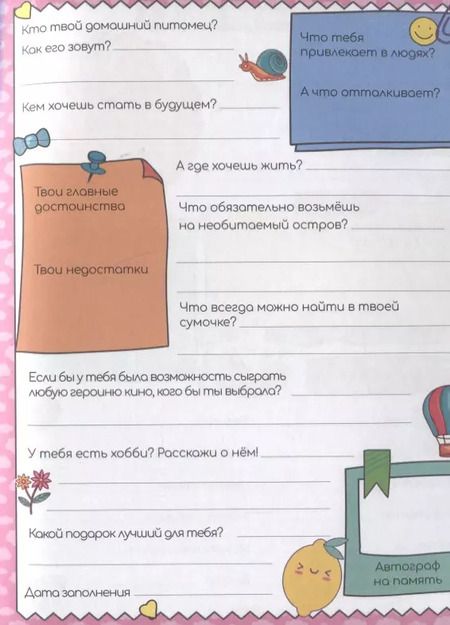 Кто твой домашний питомец?
Как его зовут?
Что тебя
привлекает в людях?
А что отталкивает?
Кем хочешь стать в будущем?
А где хочешь жить?
Твои главные
достоинства
Твои недостатки
Что обязательно возьмёшь
на необитаемый остров?
Что всегда можно найти в твоей
сумочке?
Если бы у тебя была возможность сыграть
любую героиню кино, кого бы ты выбрала?
У тебя есть хобби? Расскажи о нём!
Какой подарок лучший для тебя?
Автограф
на память
Дата заполнения